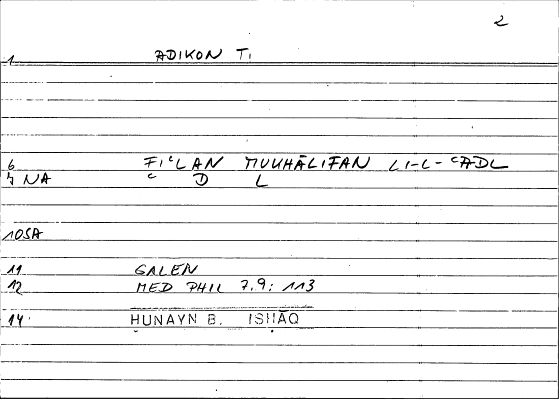 2
1 ADIKON TI
6 FIʿLAN MUKHĀLIFAN LI-L-ʿADL
7 NA ʿ D L
10SA
11 GALEN
12 MED PHIL 7,9: 113
14 ḤUNAYN B. ISḤĀQ